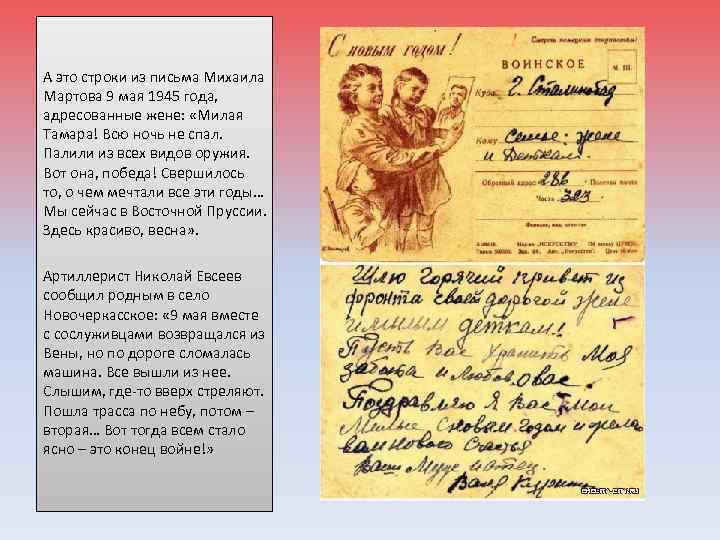 А это строки из письма Михаила
Мартова 9 мая 1945 года,
адресованные жене: «Милая
Тамара! Всю ночь не спал.
Палили из всех видов оружия.
Вот она, победа! Свершилось
то, о чем мечтали все эти годы…
Мы сейчас в Восточной Пруссии.
Здесь красиво, весна» .
Артиллерист Николай Евсеев
сообщил родным в село
Новочеркасское: « 9 мая вместе
с сослуживцами возвращался из
Вены, но по дороге сломалась
машина. Все вышли из нее.
Слышим, где-то вверх стреляют.
Пошла трасса по небу, потом –
вторая… Вот тогда всем стало
ясно – это конец войне!»
С новым годом!
ВОИНСКОЕ
Куда: г. Сталинабад
Кому Семье: жене
и Деткам.
Обратный адрес: 286 Полевая почта
Часть 323
Шлю горячий привет из
фронта своей дорогой жене
и милым деткам!
Пусть Вас хранить Моя
забота и Любовь о вас!
Поздравляю Я Вас Мои
Милые С новым годом и желаю
вам нового Счастья
Ваш Муж и отец.